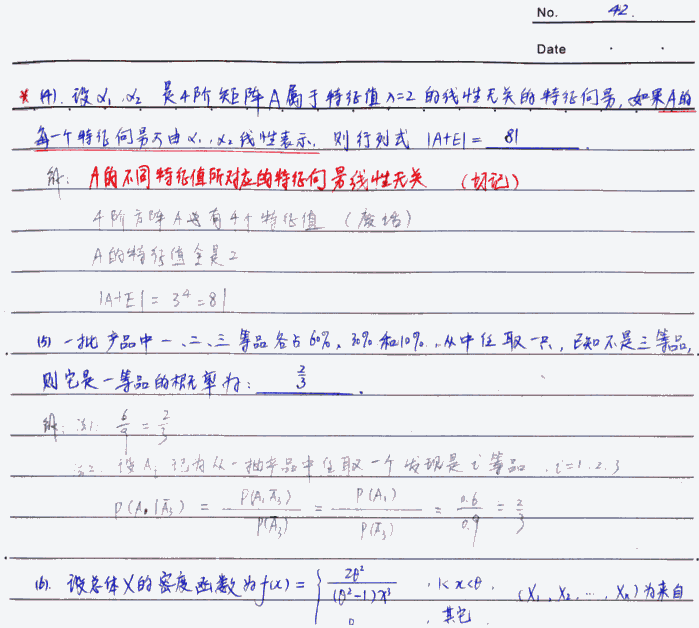 No. 42.
Date . .
* (14). 设 α₁, α₂ 是4阶矩阵A属于特征值 λ=2 的线性无关的特征向量, 如果A的
每一个特征向量可由 α₁, α₂ 线性表示, 则行列式 |A+E| = 81 .
解: A的不同特征值所对应的特征向量线性无关 (切记)
4阶方阵A必有4个特征值 (废话)
A的特征值全是2
|A+E| = 3⁴ = 81
(15) 一批产品中一、二、三等品各占60%、30%和10%. 从中任取一只, 已知不是三等品,
则它是一等品的概率为: 2/3 .
解: 法1: 6/9 = 2/3
法2. 设 Aᵢ 记为从一批产品中任取一个发现是 i 等品. i=1.2.3
P(A₁|Ā₃) = P(A₁Ā₃)/P(Ā₃) = P(A₁)/P(Ā₃) = 0.6/0.9 = 2/3
(16). 设总体X的密度函数为 f(x) = { 2θ²/((θ²-1)x³) , 1<x<θ. (X₁, X₂, ⋯, Xₙ) 为来自
0 , 其它.